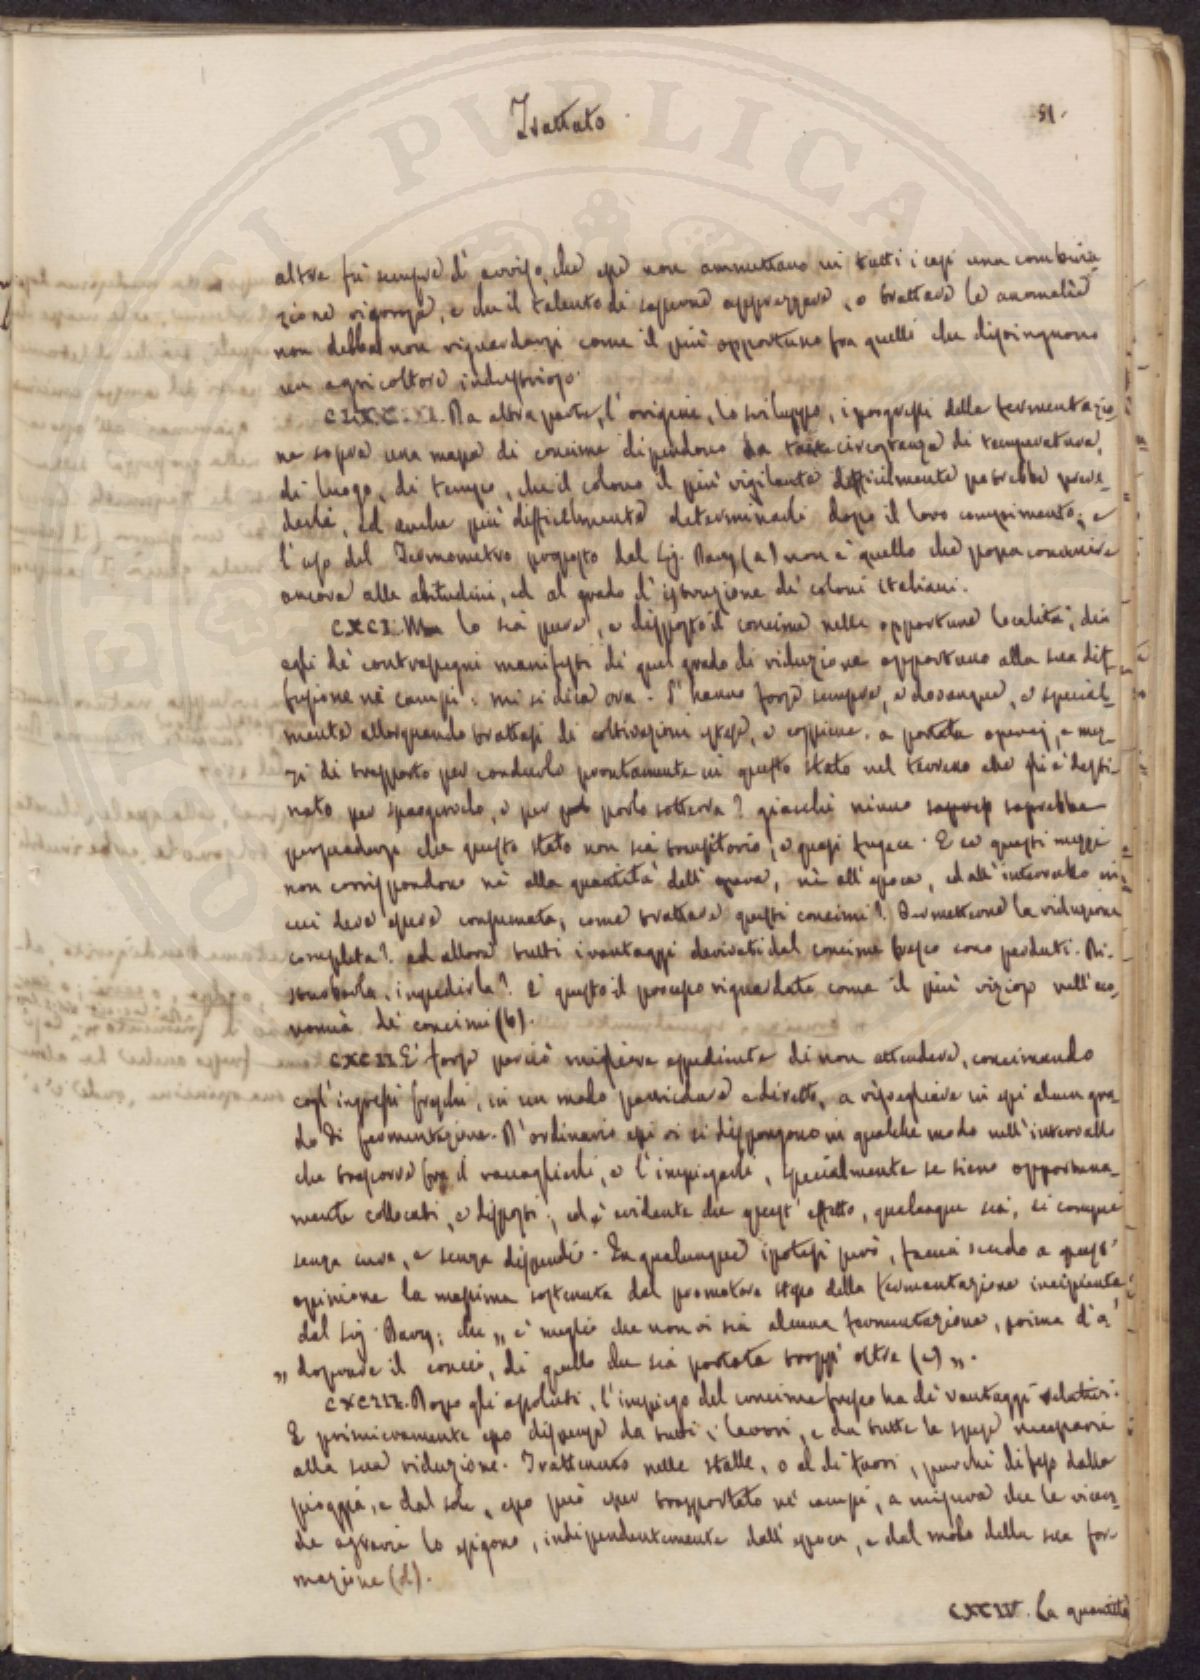 Trattato
51.
altra fù sempre d'avviso, che essi non ammettano in tutti i casi una combina-
zione rigorosa, e che il talento di saperne apprezzare, o trattare le anomalie
non debba non riguardarsi come il più opportuno fra quelli che distinguono
un agricoltore industrioso.
D'altra parte, l'origine, lo sviluppo, i progressi della fermentazio-
ne sopra una massa di concime dipendono da tante circostanze di temperatura,
di luogo, di tempo, che il colono il più vigilante difficilmente potrebbe preve-
derla, ed anche più difficilmente determinarli dopo il loro compimento; e
l'uso del Termometro proposto dal Sig. Davy (a) non è quello che possa convenire
ancora alle abitudini, ed al grado d'istruzione de' coloni Italiani.
CXCI. Ma lo sia pure, e disposto il concime nelle opportune località, dia
egli de' contrassegni manifesti di quel grado di riduzione opportuno alla sua dif-
fusione nè campi: mi si dica ora. S'hanno forse sempre, e dovunque, e special-
mente allorquando trattasi di coltivazioni estese, e copiose, a portata operaj, e mez-
zi di trasporto per condurlo prontamente in questo stato nel terreno che gli è desti-
nato per spargervelo, e per porlo sotterra? giacchè niuno saprebbe
persuadersi che questo stato non sia transitorio, e quasi fugace. E se questi mezzi
non corrispondono nè alla quantità dell'opera, nè all'epoca, ed all'intervallo in
cui deve essere consumata, come trattare questi concimi? Permetterne la riduzione
completa? ed allora tutti i vantaggi derivati dal concime fresco sono perduti. Di-
sturbarla, impedirla? È questo il processo riguardato come il più vizioso nell'eco-
nomia de' concimi (b).
CXCII. E' forse perciò migliore espediente di non attendere, concimando
cogl'ingrassi freschi, in un modo particolare e diretto, a risvegliare in essi alcun gra-
do di fermentazione. D'ordinario essi vi si dispongono in qualche modo nell'intervallo
che trascorre fra il raccoglierli, e l'impiegarli, specialmente se siano opportuna-
mente collocati, e disposti; ed è evidente che quest'effetto, qualunque sia, si compie
senza cura, e senza dispendio. In qualunque ipotesi però, faccia scudo a quest'
opinione la massima sostenuta dal promotore stesso della fermentazione incipiente
dal Sig. Davy; che „ è meglio che non vi sia alcuna fermentazione, prima d'a-
„ doprare il concio, di quello che sia portata troppo oltre (c) „.
CXCIII. Dopo gli assoluti, l'impiego del concime fresco ha de' vantaggi relativi.
E primieramente esso dispensa da tutti i lavori, e da tutte le spese necessarie
alla sua riduzione. Trattenuto nelle stalle, o al di fuori, purchè difeso dalla
pioggia, e dal sole, esso può esser trasportato nè campi, a misura che le vicen-
de agrarie lo esigono, indipendentemente dall'epoca, e dal modo della sua for-
mazione (d).
CXCIV. La quantità